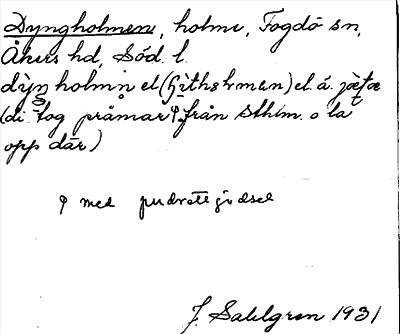 Dyngholmen, holme, Fogdö sn,
Åkers hd, Söd. l.
dyngholmn el (Githshrmen) el. á.
(di tog pråmar ⚲ från Sthlm. o la
opp där)
⚲ med pudrettgödsel
J. Sahlgren 1931